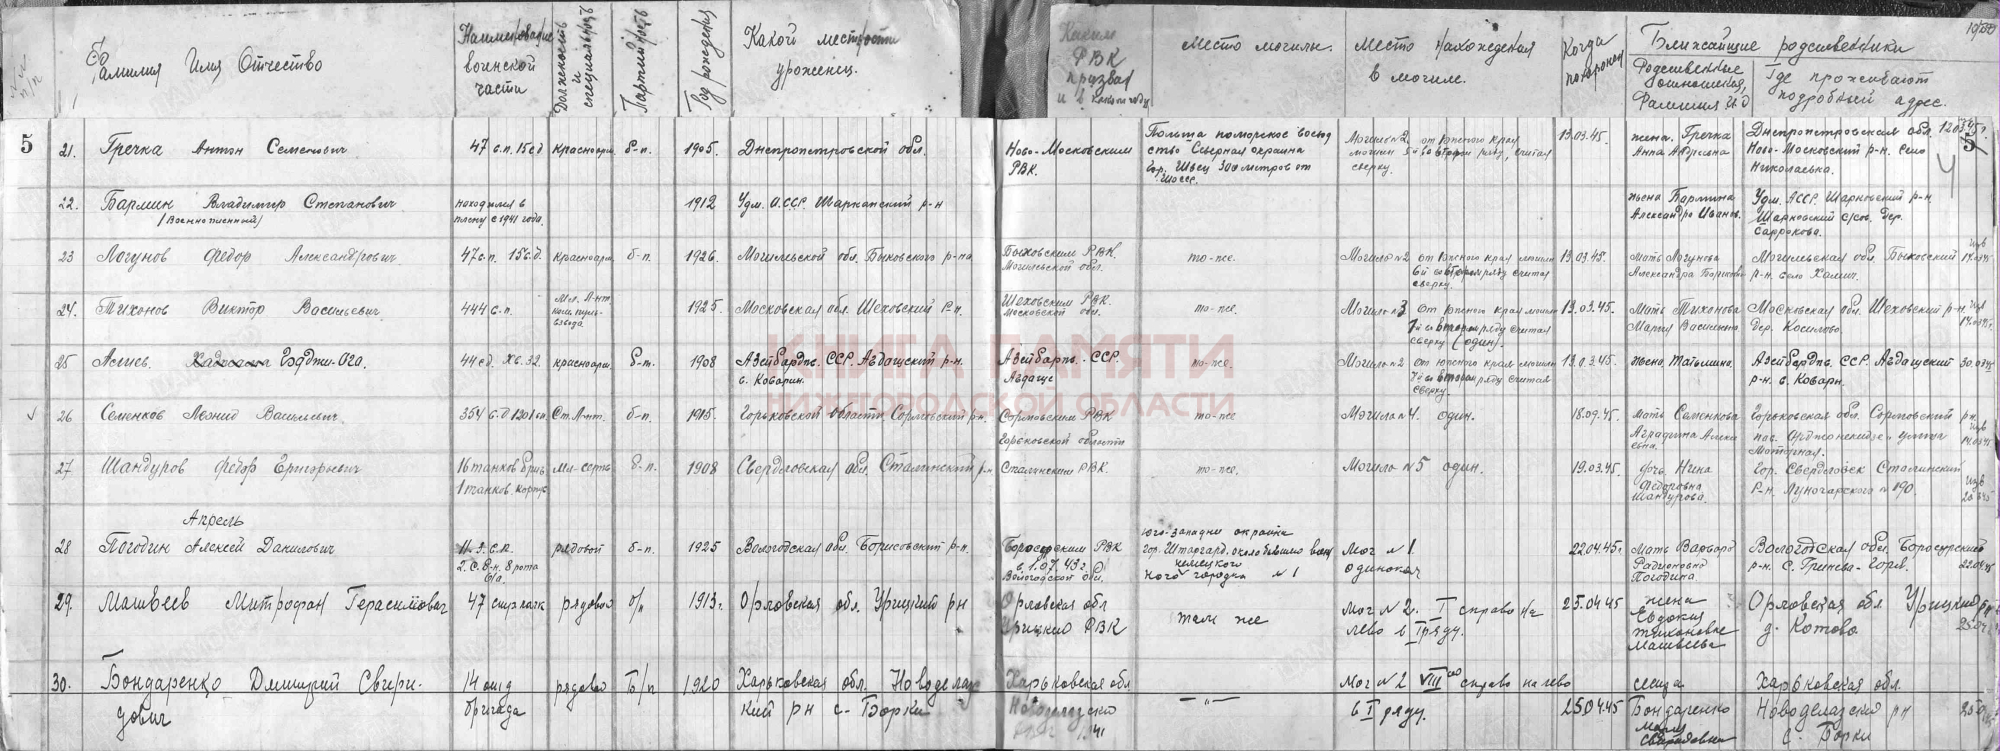 Фамилия Имя Отчество
Наименование воинской части
Должность и специальность
Партийность
Год рождения
Какой местности уроженец.
Каким РВК призван и в каком году
Место могилы.
Место нахождения в могиле.
Когда похоронен
Ближайшие родственники
Родственные отношения, Фамилия И.О
Где проживают подробный адрес.
5
21. Гречка Антон Семенович 47 с.п. 15 с.д красноарм. б-п. 1905. Днепропетровской обл.
Ново-Московским РВК.
Польша поморское воевод
ство Северная окраина
гор. Швец 300 метров от
шоссе.
Могила №2 от южного края
могилы 5й во втором ряду, считая
сверху.
13.03.45. жена. Гречка
Днепропетровская обл.
Ново-Московский р-н. Село
Николаевка.
5
22. Бармин Владимир Степанович
/Военнопленный/
находился в
плену с 1941 года.
1912 Удм. А.ССР. Шарканский р-н
жена Бармина
Александра Иванов.
Удм. АССР. Шарковский р-н
Шарковский с/сов. дер.
23 Логунов Федор Александрович 47 с.п. 15 с.д. красноарм. б-п. 1926. Могилевской обл. Быховского р-на
Быховским РВК.
Могилевской обл.
то-же.
Могила №2 от южного края могилы
6й во втором ряду считая
сверху.
13.03.45. Мать Логунова
Могилевская обл. Быховский
24. Тихонов Виктор Васильевич 444 с.п. Мл. Л-нт
ком. пуль-
взвода
1925. Московская обл. Шеховский р-н.
Шеховским РВК.
Московской обл.
то-же.
Могила №3 от южного края могилы
1й во втором ряду считая
сверху (один).
13.03.45. Мать Тихонова
Мария Васильевна
Московская обл. Шеховский р-н
25 Алиев. Гаджи-Ага. 44 с.д. Хв. 32. красноарм. б-п. 1908 Азейбардж. ССР. Авдашский р-н.
с. Коварин.
то-же.
Могила №2 от южного края могилы
7й во втором ряду считая
сверху.
13.03.45. жена, Татьмина.
Азейбардж. ССР. Авдашский
26 Семенков Леонид Васильевич 354 с.д 1201 сп Ст. Л-нт. б-п. 1915. Горьковской область Сормовский р-н.
Сормовским РВК
Горьковской области
то-же
Могила №4. один.
мать Семенкова
Горьковская обл. Сормовский р-н.
пос. Орджоникидзе улица
Моторная.
27 Шандуров Федор Григорьевич 16 танков. бриг.
1 танков. корпус
Мл-серж. б-п. 1908 Свердловская обл. Сталинский р-н
Сталинским РВК
то-же.
Могила №5 один.
19.03.45. дочь Нина
Федоровна
Шандурова.
Гор. Свердловск Сталинский
р-н. Луночарского № 190.
Апрель
28 Погодин Алексей Данилович рядовой б-п. 1925 Вологодская обл. Борисовский р-н.
Вологодской обл.
юго-западн окраина
Мог №1.
одиноком
22.04.45г. Мать Варвара
Радионовна
Погодина.
29. Матвеев Митрофан Герасимович 47 стр полк рядовой б/п 1913г. Орловская обл. Урицкий рн
Орловская обл
Урицкий РВК
там же
Мог №2. I справа на
лево в I ряду.
25.04.45 жена
Евдокия
Тихоновне
Матвеева
Орловская обл. Урицкий рн
д. Котово
30. Бондаренко Дмитрий Свири-
дович
14 отд
бригада
рядовой Б/п 1920 Харьковская обл. Новоделаж
кий рн с- Борки
Харьковская обл
—"—
Мог №2 VIII ой справа на лево
в I ряду.
25.04.45 Бондаренко
Харьковская обл.
с- Борки
КНИГА ПАМЯТИ
НИЖЕГОРОДСКОЙ ОБЛАСТИ